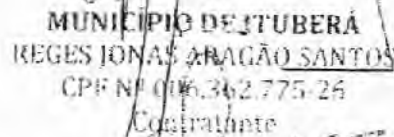 MUNICÍPIO DE ITUBERÁ
REGES JONAS ARAGÃO SANTOS
CPF Nº 006.362.775-26
Contratante